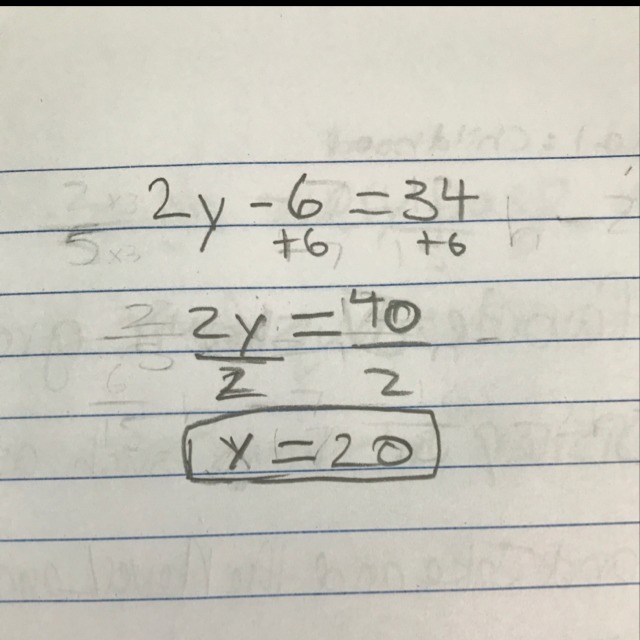 2y - 6 = 34
+6 +6
2y = 40
2 2
y = 20